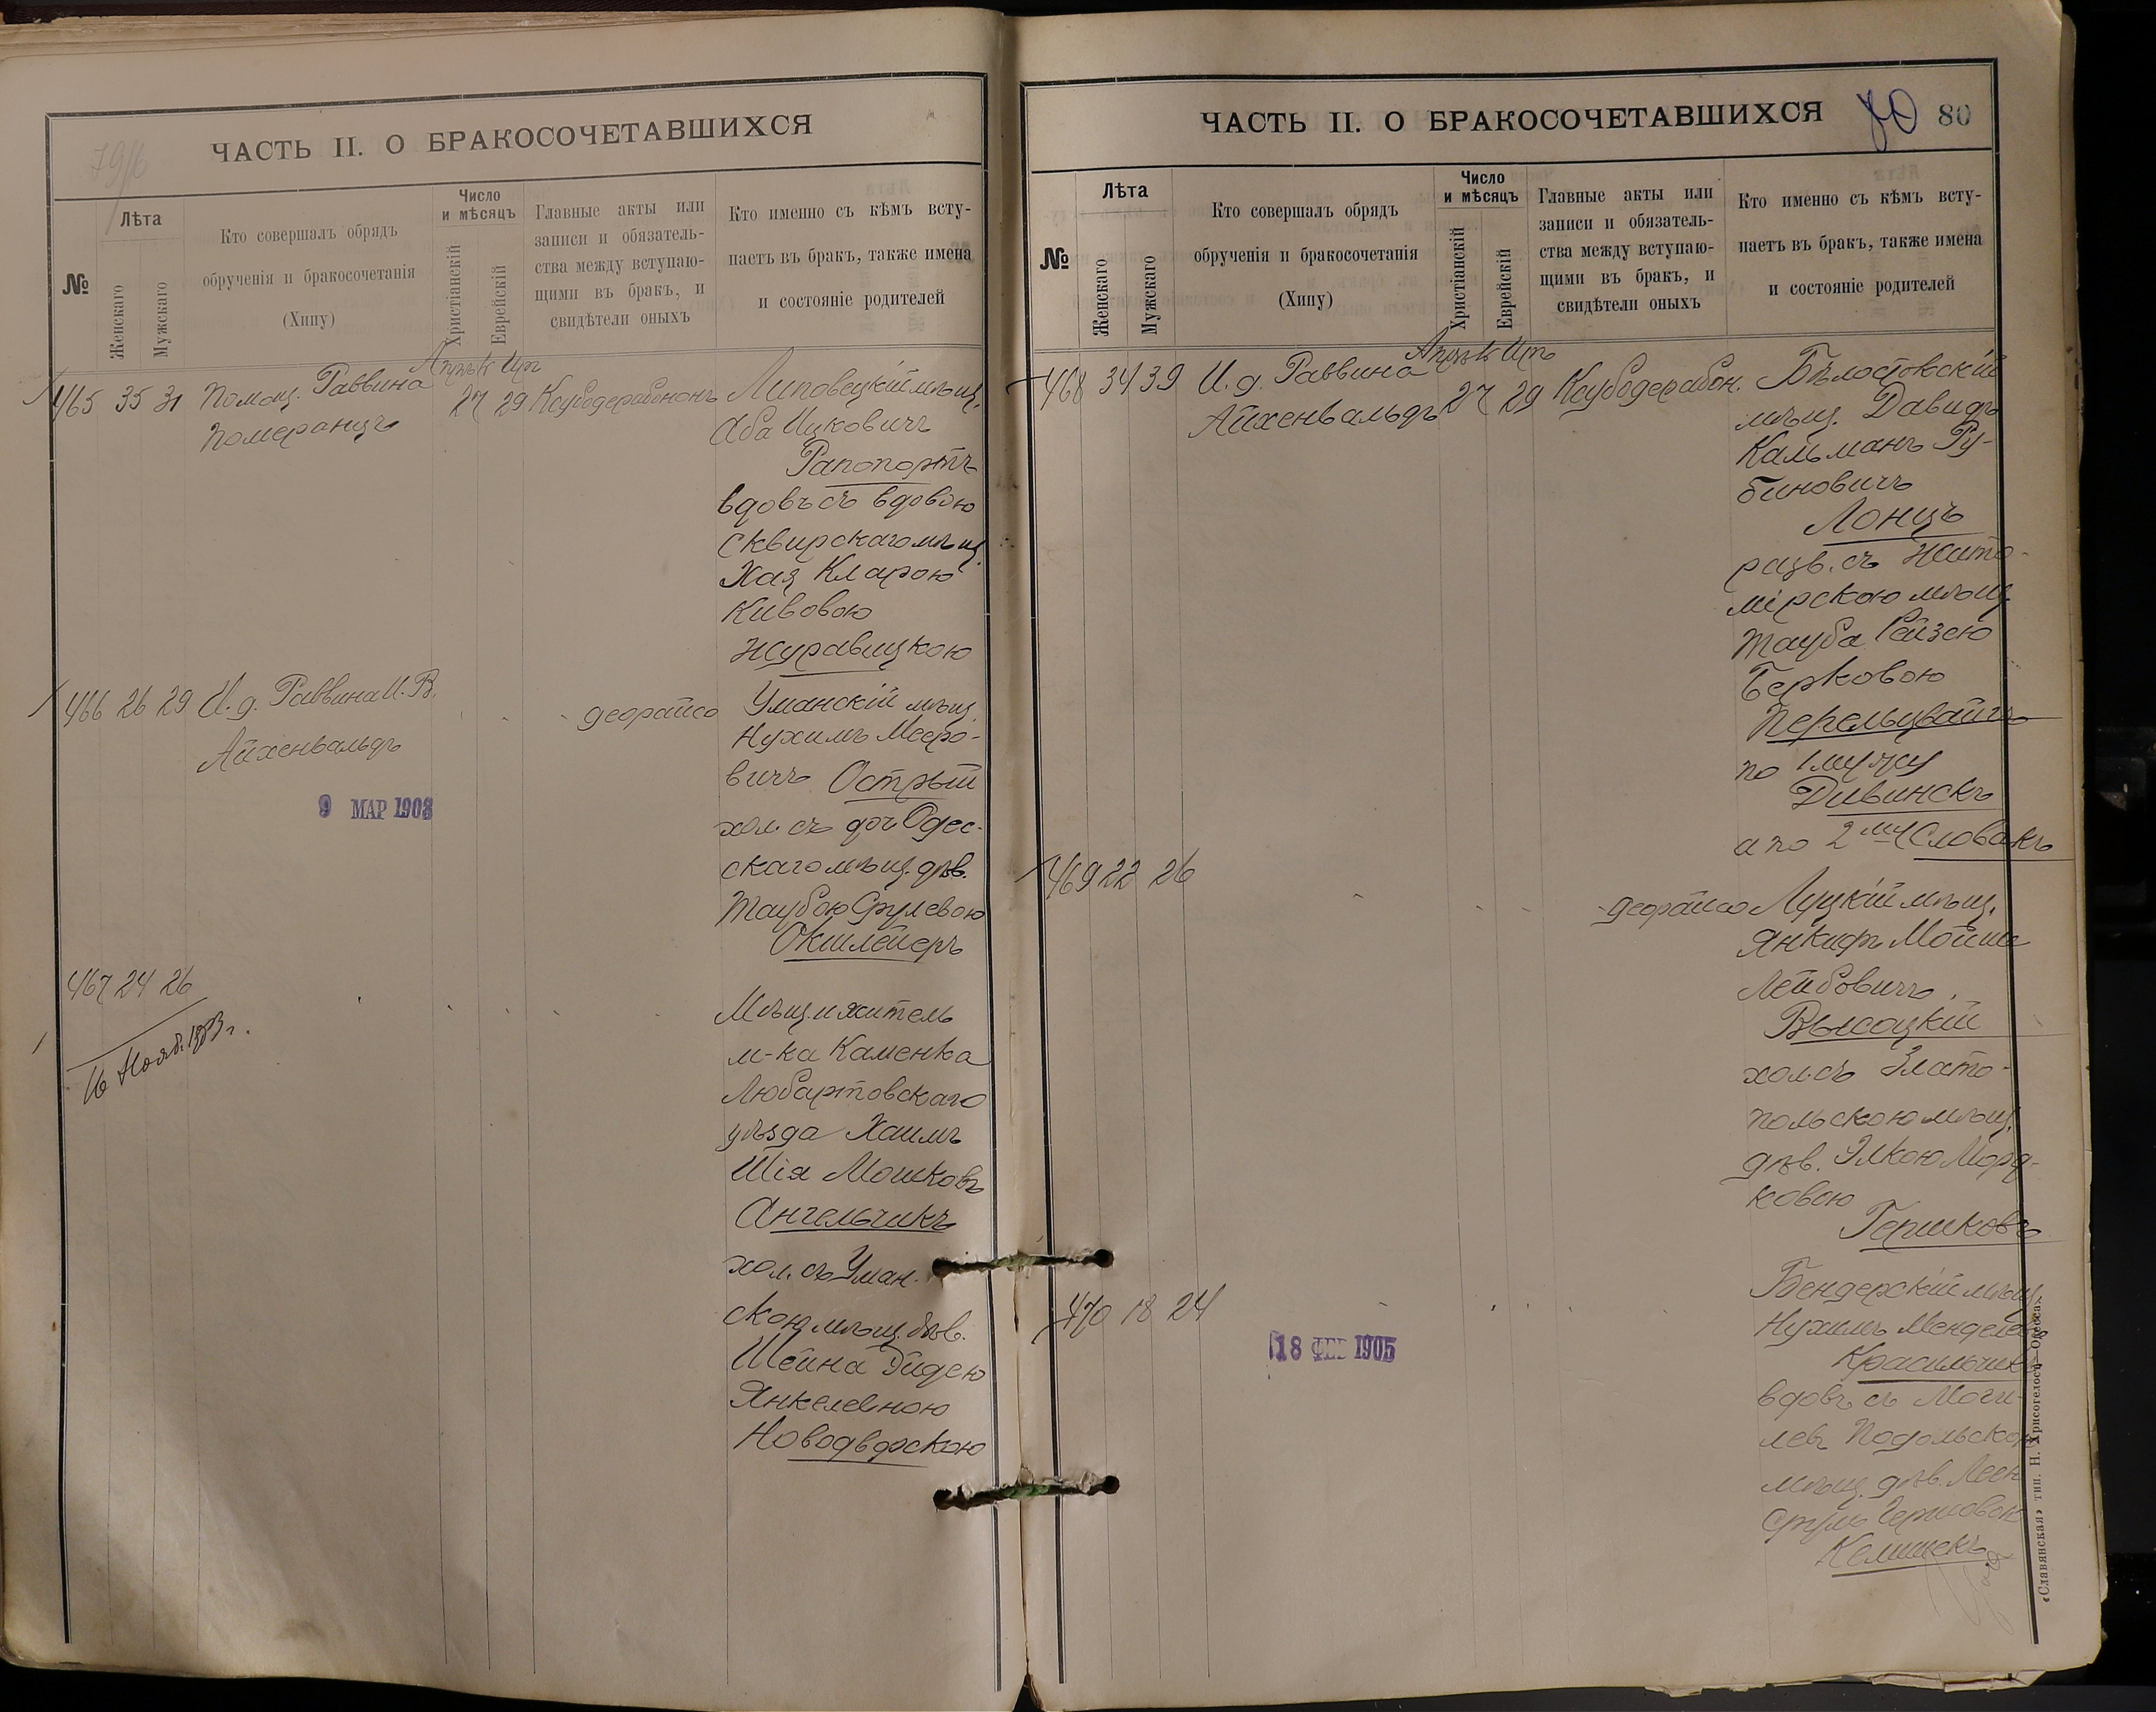 ЧАСТЬ II. О БРАКОСОЧЕТАВШИХСЯ
79/б
№
Лѣта
Женскаго
Мужскаго
Кто совершалъ обрядъ
обрученія и бракосочетанія
(Хипу)
Число
и мѣсяцъ
Христіанскій
Еврейскій
Главные акты или
записи и обязатель-
ства между вступаю-
щими въ бракъ, и
свидѣтели оныхъ
Кто именно съ кѣмъ всту-
паетъ въ бракъ, также имена
и состояніе родителей
465 35 31 Помощ. Раввина
Померанцъ
27 29
Липовецкій мѣщ.
Аба Ицковичъ
Рапопортъ
вдовъ съ вдовою
Сквирскаго мѣщ.
Хая Кларою
Кивовою
Журавицкою
466 26 29 И. д. Раввина И. В.
Айхенвальдъ
деорайсо
Уманскій мѣщ.
Нухимъ Мееро-
вичъ Острый
хол. съ доч Одес-
скаго мѣщ. дѣв.
Таубою Срулевою
Окшлейеръ
9 МАР 1908
467 24 26
16 Нояб. 1983 г.
Мѣщ. и житель
м-ка Каменка
Любартовскаго
уѣзда Хаимъ
Шія Мошковъ
Ангельчикъ
хол. съ Уман-
скою мѣщ. дѣв.
Шейна Эйдею
Янкелевною
Новодворскою
ЧАСТЬ II. О БРАКОСОЧЕТАВШИХСЯ
80 80
№
Лѣта
Женскаго
Мужскаго
Кто совершалъ обрядъ
обрученія и бракосочетанія
(Хипу)
Число
и мѣсяцъ
Христіанскій
Еврейскій
Главные акты или
записи и обязатель-
ства между вступаю-
щими въ бракъ, и
свидѣтели оныхъ
Кто именно съ кѣмъ всту-
паетъ въ бракъ, также имена
и состояніе родителей
468 34 39 И. д. Раввина
Айхенвальдъ
27 29
Бѣлостокскій
мѣщ. Давидъ
Кальманъ Ру-
биновичъ
Лонцъ
разв. съ Жито-
мірскою мѣщ.
Тауба Рейзею
Берковою
Перельцвайгъ
по 1 мужу
Дивинскъ
а по 2му Словакъ
469 22 26
деорайсо
Луцкій мѣщ.
Янкифъ Мойше
Лейбовичъ
Высоцкій
хол. съ Злато-
польскою мѣщ.
дѣв. Элкою Морд-
ковою
Гершковъ
470 18 24
18 ФЕВ 1905
Бендерскій мѣщ.
Нухимъ Менделевъ
Красильчикъ
вдовъ съ Моги-
лев Подольскою
мѣщ. дѣв.
«Славянская» тип. Н. Хрисогелосъ—Одесса.